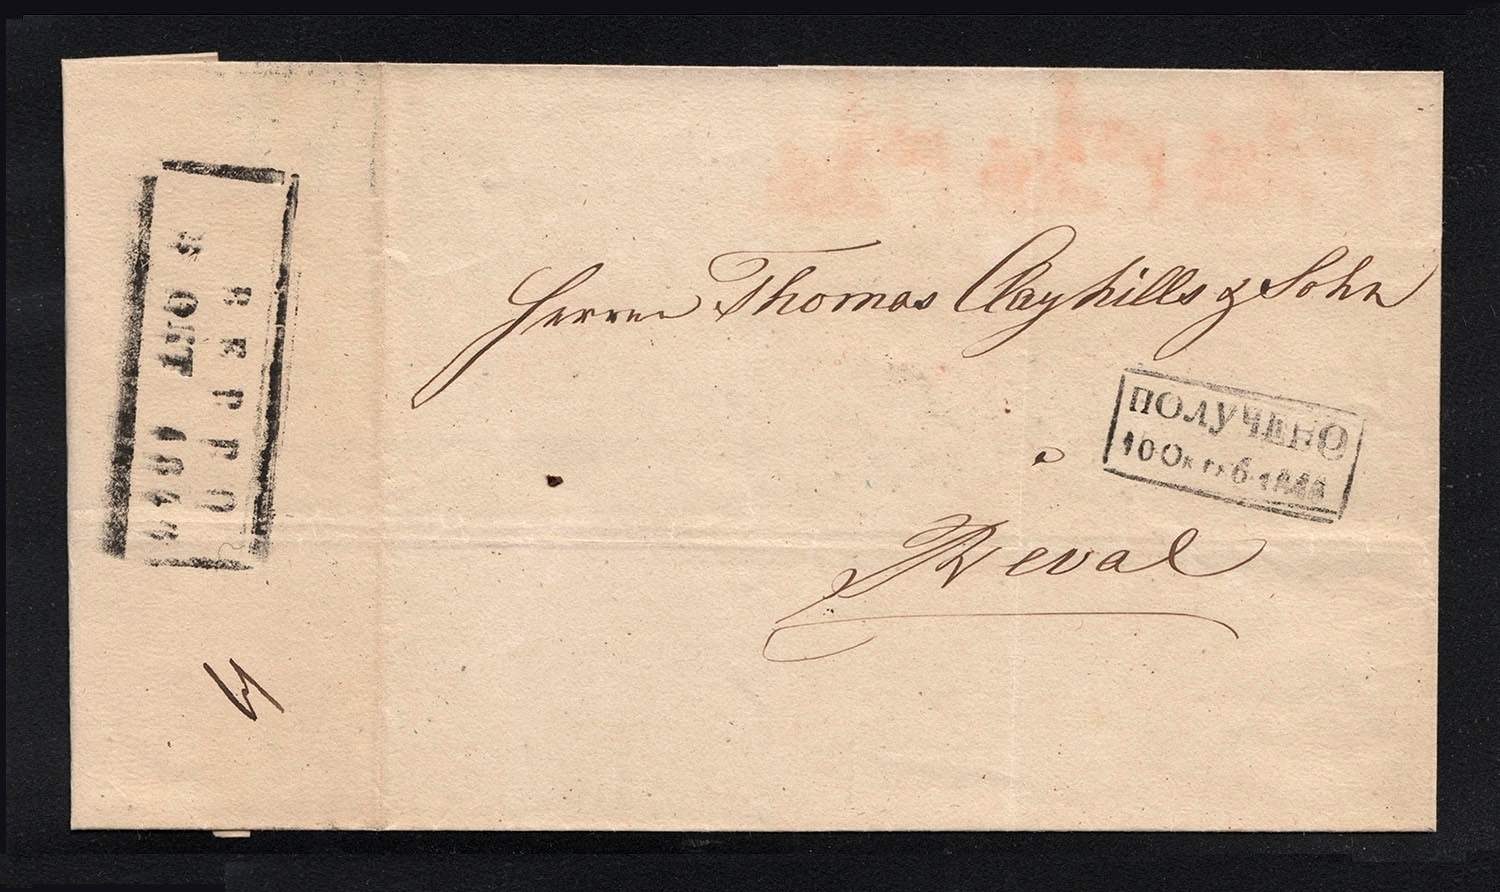 ВЕРРО
8 ОКТ 1848
Herren Thomas Clayhills & Sohn
ПОЛУЧЕНО
10 Октб. 1848
Reval